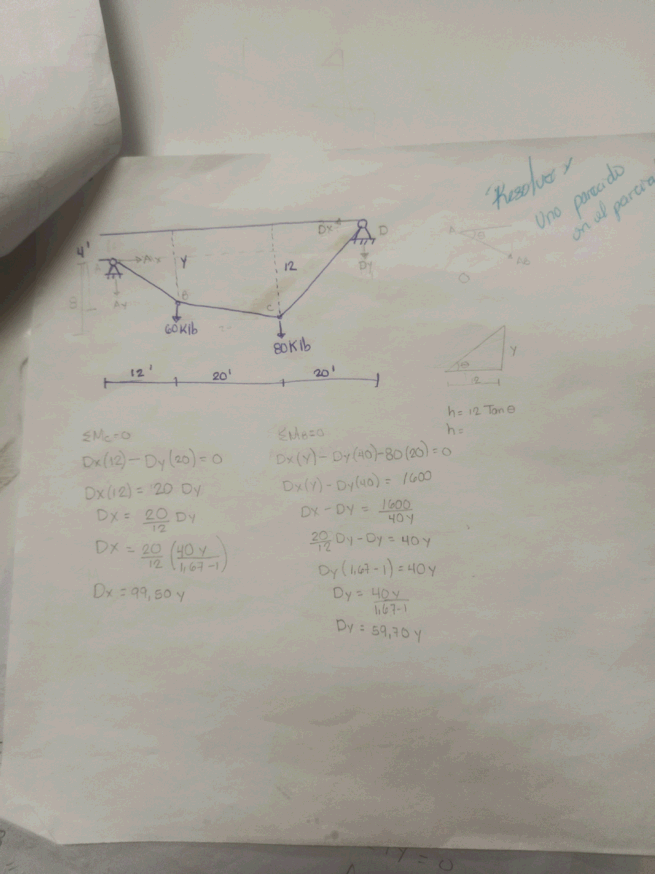 "Resolver"
Uno parecido
en el parcial
4'
Ax
Ay
8
Y
B
60Klb
12
C
80Klb
Dx
D
Dy
12'
20'
20'
A
θ
AB
θ
Y
2
h= 12 Tan θ
h=
ΣMc=0
Dx(12) - Dy(20) = 0
Dx(12) = 20 Dy
Dx = 20/12 Dy
Dx = 20/12 (40y/1,67-1)
Dx = 99,50 y
ΣMB=0
Dx(y) - Dy(40) - 80(20) = 0
Dx(y) - Dy(40) = 1600
Dx - Dy = 1600/40y
20/12 Dy - Dy = 40y
Dy(1,67-1) = 40y
Dy = 40y/1,67-1
Dy = 59,70 y
y = 0